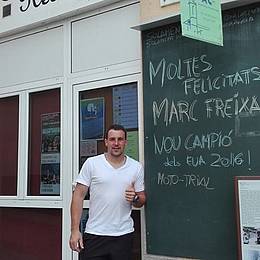 MOLTES
FELICITATS
MARC FREIXA
NOU CAMPIÓ
dels EUA 2016!
MOTO-TRIAL